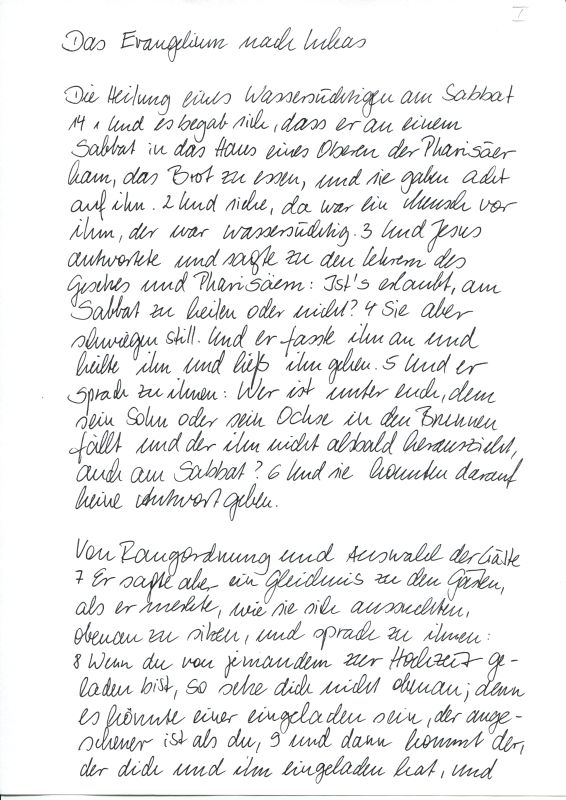 I
Das Evangelium nach Lukas
Die Heilung eines Wassersüchtigen am Sabbat
14 1 Und es begab sich, dass er an einem
Sabbat in das Haus eines Oberen der Pharisäer
kam, das Brot zu essen, und sie gaben acht
auf ihn. 2 Und siehe, da war ein Mensch vor
ihm, der war wassersüchtig. 3 Und Jesus
antwortete und sagte zu den Lehrern des
Gesetzes und Pharisäern: Ist's erlaubt, am
Sabbat zu heilen oder nicht? 4 Sie aber
schwiegen still. Und er fasste ihn an und
heilte ihn und ließ ihn gehen. 5 Und er
sprach zu ihnen: Wer ist unter euch, dem
sein Sohn oder sein Ochse in den Brunnen
fällt und der ihn nicht alsbald herauszieht,
auch am Sabbat? 6 Und sie konnten darauf
keine Antwort geben.
Von Rangordnung und Auswahl der Gäste
7 Er sagte aber ein Gleichnis zu den Gästen,
als er merkte, wie sie sich aussuchten,
obenan zu sitzen, und sprach zu ihnen:
8 Wenn du von jemandem zur Hochzeit ge-
laden bist, so setze dich nicht obenan; denn
es könnte einer eingeladen sein, der ange-
sehener ist als du, 9 und dann kommt der,
der dich und ihn eingeladen hat, und